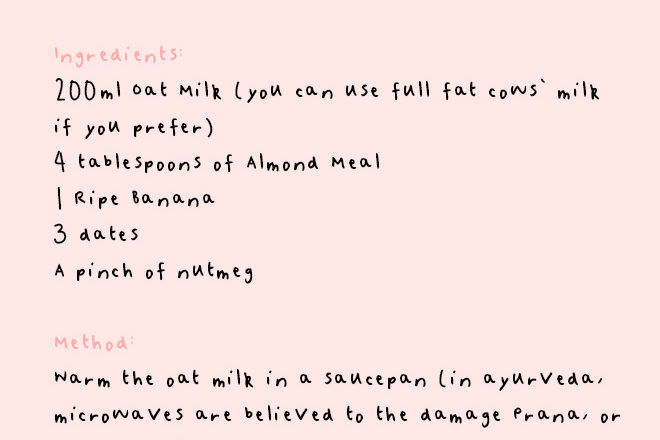 Ingredients:
200ml oat Milk (you can use full fat cows` milk
if you prefer)
4 tablespoons of Almond Meal
1 Ripe Banana
3 dates
A pinch of nutmeg
Method:
Warm the oat milk in a saucepan (in ayurveda,
microwaves are believed to the damage Prana, or